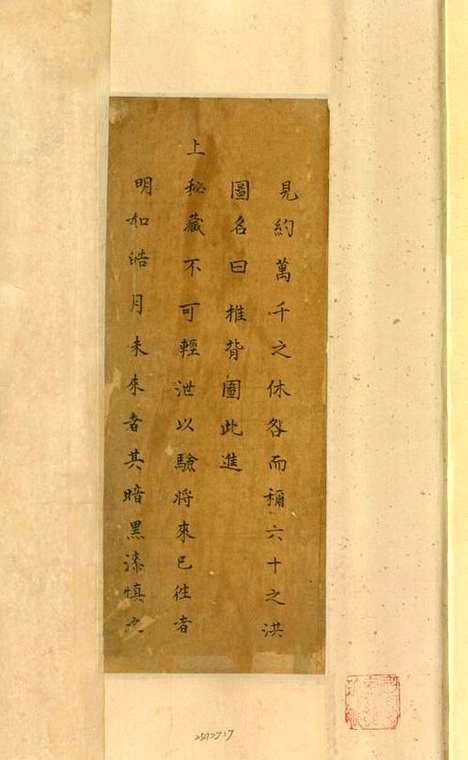 見約萬千之休咎而稱六十之洪
圖名曰推背圖此進
上秘藏不可輕泄以驗將來已徃者
明如皓月未來者其暗黑漆慎之